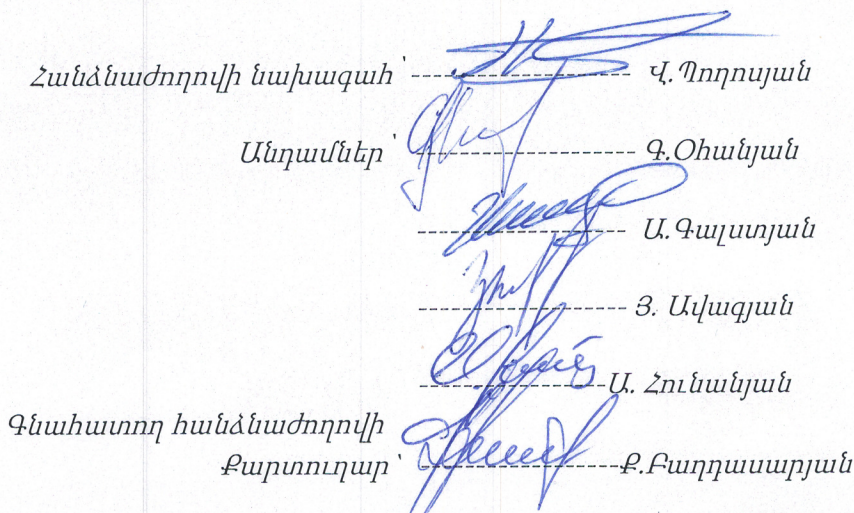 Հանձնաժողովի նախագահ՝ ---------------------- Վ.Պողոսյան
Անդամներ՝ ---------------------- Գ.Օհանյան
---------------------- Ա.Գալստյան
---------------------- Յ. Ավագյան
---------------------- Ա. Հունանյան
Գնահատող հանձնաժողովի
Քարտուղար՝ ---------------------- Ք.Բաղդասարյան